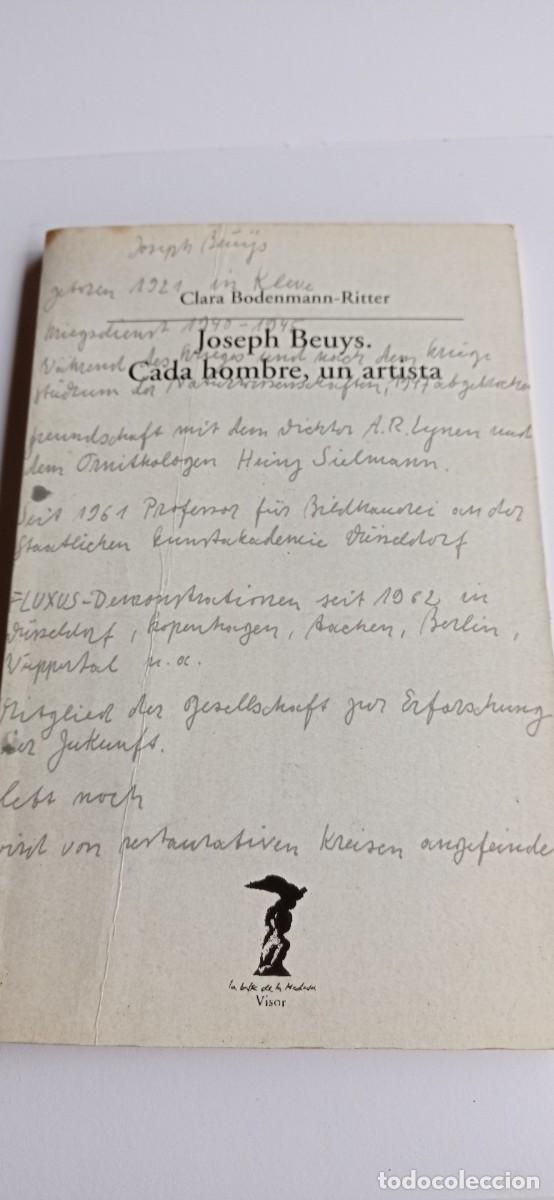 Joseph Beuys
geboren 1921 in Kleve
Clara Bodenmann-Ritter
Kriegsdienst 1940-1945
Joseph Beuys.
Während des Krieges und nach dem Kriege
Cada hombre, un artista
Studium der Naturwissenschaften, 1947 abgebrochen
Freundschaft mit dem Dichter A.R. Lynen und
dem Ornithologen Heinz Sielmann.
Seit 1961 Professor für Bildhauerei an der
Staatlichen Kunstakademie Düsseldorf
FLUXUS-Demonstrationen seit 1962 in
Düsseldorf, Kopenhagen, Aachen, Berlin,
Wuppertal u.a.
Mitglied der Gesellschaft zur Erforschung
der Zukunft.
lebt noch
wird von restaurativen Kreisen angefeinde
la balsa de la Medusa
Visor
todocoleccion